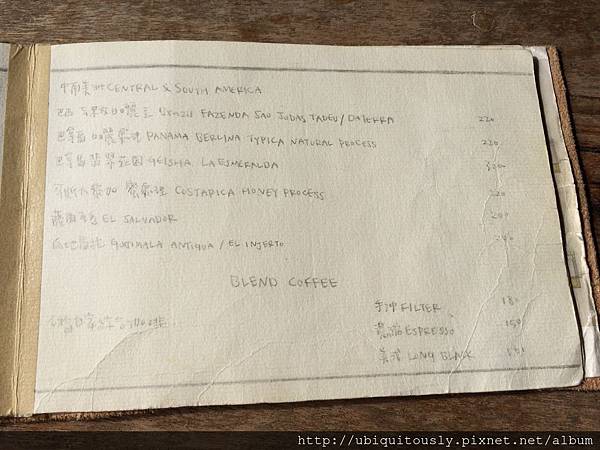 中南美洲 CENTRAL & SOUTH AMERICA
巴西 BRAZIL FAZENDA SAO JUDAS TADEU / DATERRA 220
巴拿馬 PANAMA BERLINA TYPICA NATURAL PROCESS 220
巴拿馬 翡翠莊園 GEISHA. LA ESMERALDA 300
蜜處理 COSTARICA HONEY PROCESS 220
薩爾瓦多 EL SALVADOR 200
瓜地馬拉 GUATIMALA ANTIGUA / EL INJERTO 200
BLEND COFFEE
手沖 FILTER 180
自家綜合咖啡 濃縮 ESPRESSO 150
美式 LONG BLACK
http://ubiquitously.pixnet.net/album